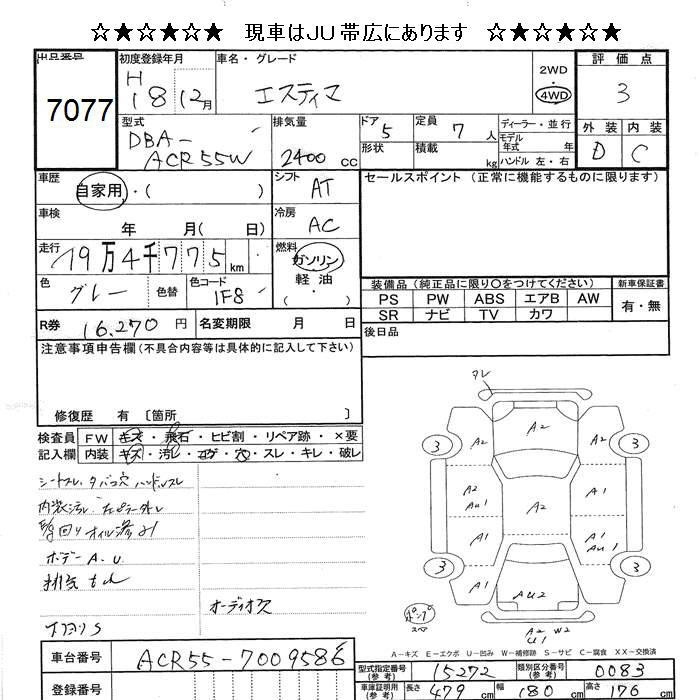 ☆★☆★☆★ 現車はJU帯広にあります ☆★☆★☆★
出品番号 初度登録年月 車名・グレード 2WD 4WD 評価点
7077 H 18 12月 エスティマ 3
型式 DBA-ACR55W 排気量 2400 cc ドア 5 定員 7 人 ディーラー・並行 外装 内装
形状 積載 kg モデル年式 年 ハンドル 左・右 D C
車歴 自家用・( ) シフト AT セールスポイント (正常に機能するものに限ります)
車検 年 月( 日) 冷房 AC
走行 19万4千775 km 燃料 ガソリン 軽油 ・( )
色 グレー 色替 色コード 1F8
装備品 (純正品に限り〇をつけてください) 新車保証書
PS PW ABS エアB AW 有・無
SR ナビ TV カワ
R券 16,270 円 名変期限 月 日 後日品
注意事項申告欄(不具合内容等は具体的に記入して下さい)
修復歴 有 〔箇所 〕
検査員 FW キズ・飛石・ヒビ割・リペア跡・×要
記入欄 内装 キズ・汚レ・コゲ・穴・スレ・キレ・破レ
シートスレ タバコ穴 ハンドルスレ
内装汚レ
オイル滲み
ボデー A.U
排気
オーディオ欠
下廻りS
ズレ
A2
A2
A2
3
3
A2
AU1
A2
A1
A1
A1
AU1
3
3
A1
AU2
A2
A2
U1
W2
A-キズ E-エクボ U-凹み W-補修跡 S-サビ C-腐食 XX-交換済
車台番号 ACR55-7009586
型式指定番号(参考) 15272 類別区分番号(参考) 0083
登録番号
車庫証明用(参考) 長さ 479 cm 幅 180 cm 高さ 176 cm